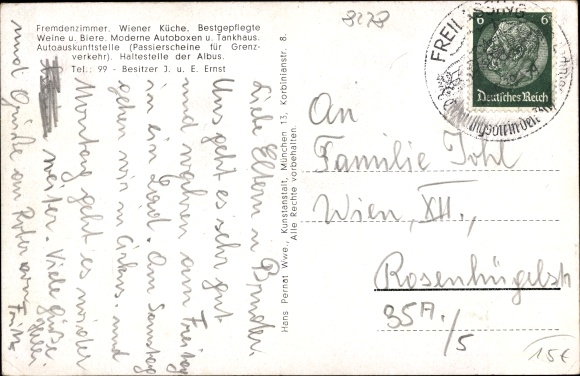 Fremdenzimmer. Wiener Küche. Bestgepflegte
Weine u. Biere. Moderne Autoboxen u. Tankhaus.
Autoauskunftstelle (Passierscheine für Grenz-
verkehr). Haltestelle der Albus.
Tel.: 99 - Besitzer J. u. E. Ernst
Liebe Eltern u. Bruder.
Uns geht es sehr gut
und wir am Freitag
in ein Bad. Am Samstag
gehen wir in Cirkus. und
Montag geht es wieder
weiter. Viele Grüße
und
Fritz
Hans Pernat Wwe., Kunstanstalt, München 13, Korbinianstr. 8.
Alle Rechte vorbehalten.
8278
6 6
Deutsches Reich
FREILASSING
An
Familie Johl
Wien, XII.,
Rosenhügelstr
35A./5
15€